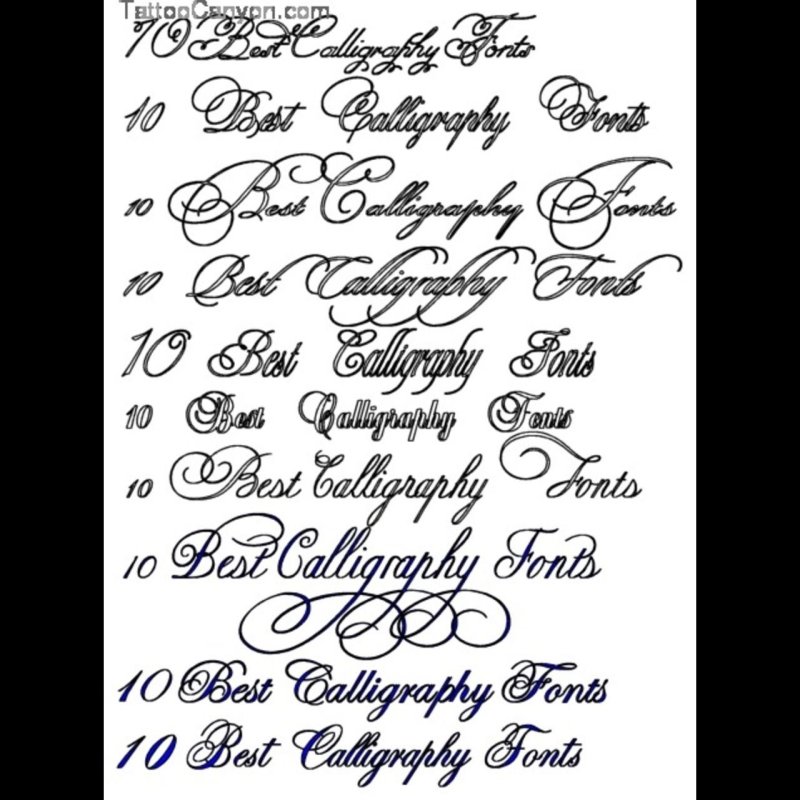 TattooCanvon.com
10 Best Calligraphy Fonts
10 Best Calligraphy Fonts
10 Best Calligraphy Fonts
10 Best Calligraphy Fonts
10 Best Calligraphy Fonts
10 Best Calligraphy Fonts
10 Best Calligraphy Fonts
10 Best Calligraphy Fonts
10 Best Calligraphy Fonts
10 Best Calligraphy Fonts